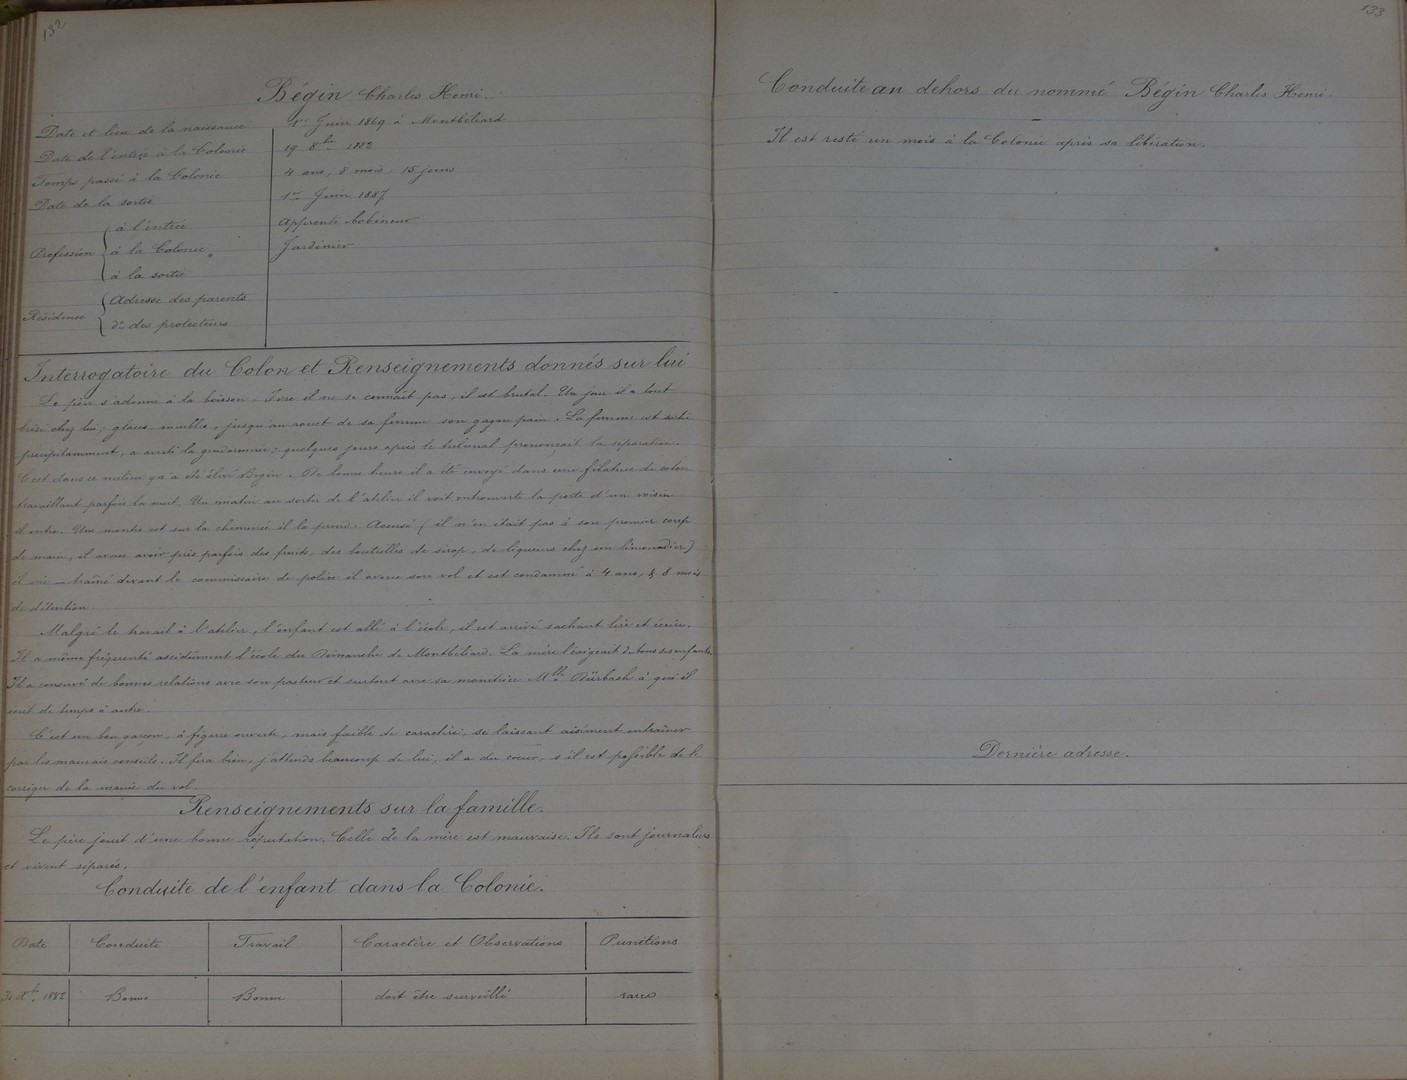 132
Bégin Charles Henri
Date et lieu de la naissance 1er Juin 1869 à Montbéliard
Date de l'entrée à la Colonie 19 8bre 1882
Temps passé à la Colonie 4 ans, 8 mois 15 jours
Date de la sortie 1er Juin 1887
Profession à l'entrée apprenti bobineur
à la Colonie Jardinier
à la sortie
Résidence Adresse des parents
do des protecteurs
Interrogatoire du Colon et Renseignements donnés sur lui
Le père s'adonne à la boisson. Ivre il ne se connaît pas, il est brutal. Un jour il a tout
brisé chez lui; glaces, meubles, jusqu'au rouet de sa femme son gagne pain. La femme est sortie
précipitamment, a averti la gendarmerie; quelques jours après le tribunal prononçait la séparation.
C'est dans ce milieu qu'a été élevé Bégin. De bonne heure il a été envoyé dans une filature de coton
travaillant parfois la nuit. Un matin au sortir de l'atelier il voit entrouverte la porte d'un voisin
il entre. Une montre est sur la cheminée il la prend. Accusé (il n'en était pas à son premier coup
de main, il avoue avoir pris parfois des fruits, des bouteilles de sirop, de liqueurs chez un limonadier)
il nie – traîné devant le commissaire de police il avoue son vol et est condamné à 4 ans, & 8 mois
de détention.
Malgré le travail à l'atelier, l'enfant est allé à l'école, il est arrivé sachant lire et écrire.
Il a même fréquenté assidûment l'école du Dimanche de Montbéliard. La mère l'exigeait de tous ses enfants.
Il a conservé de bonnes relations avec son pasteur et surtout avec sa monitrice Mlle Dürbach à qui il
écrit de temps à autre.
C'est un bon garçon, à figure ouverte, mais faible de caractère, se laissant aisément entraîner
par les mauvais conseils. Il fera bien, j'attends beaucoup de lui, il a du coeur, s'il est possible de le
corriger de la manie du vol.
Renseignements sur la famille.
Le père jouit d'une bonne réputation. Celle de la mère est mauvaise. Ils sont journaliers
et vivent séparés.
Conduite de l'enfant dans la Colonie.
Date Conduite Travail Caractère et Observations Punitions
31 Xbre 1882 Bonne Bonne doit être surveillé rares
133
Conduite au dehors du nommé Bégin Charles Henri
Il est resté un mois à la Colonie après sa libération.
Dernière adresse.